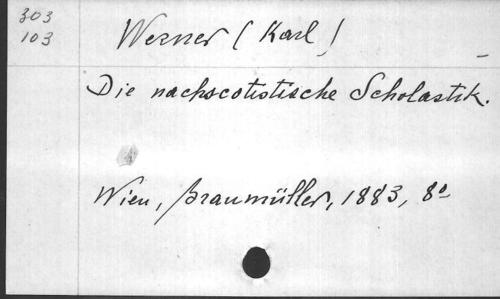 303
103
Werner (Karl)
Die nachscotistische Scholastik.
Wien, Braumüller, 1883, 8º